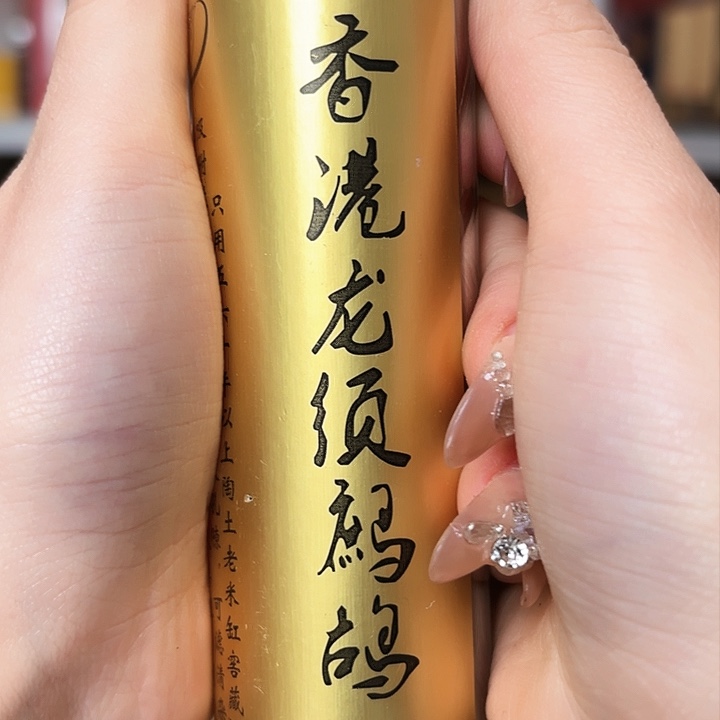 香港龙须鹧鸪
只用五六十年以上陶土老米缸窖藏